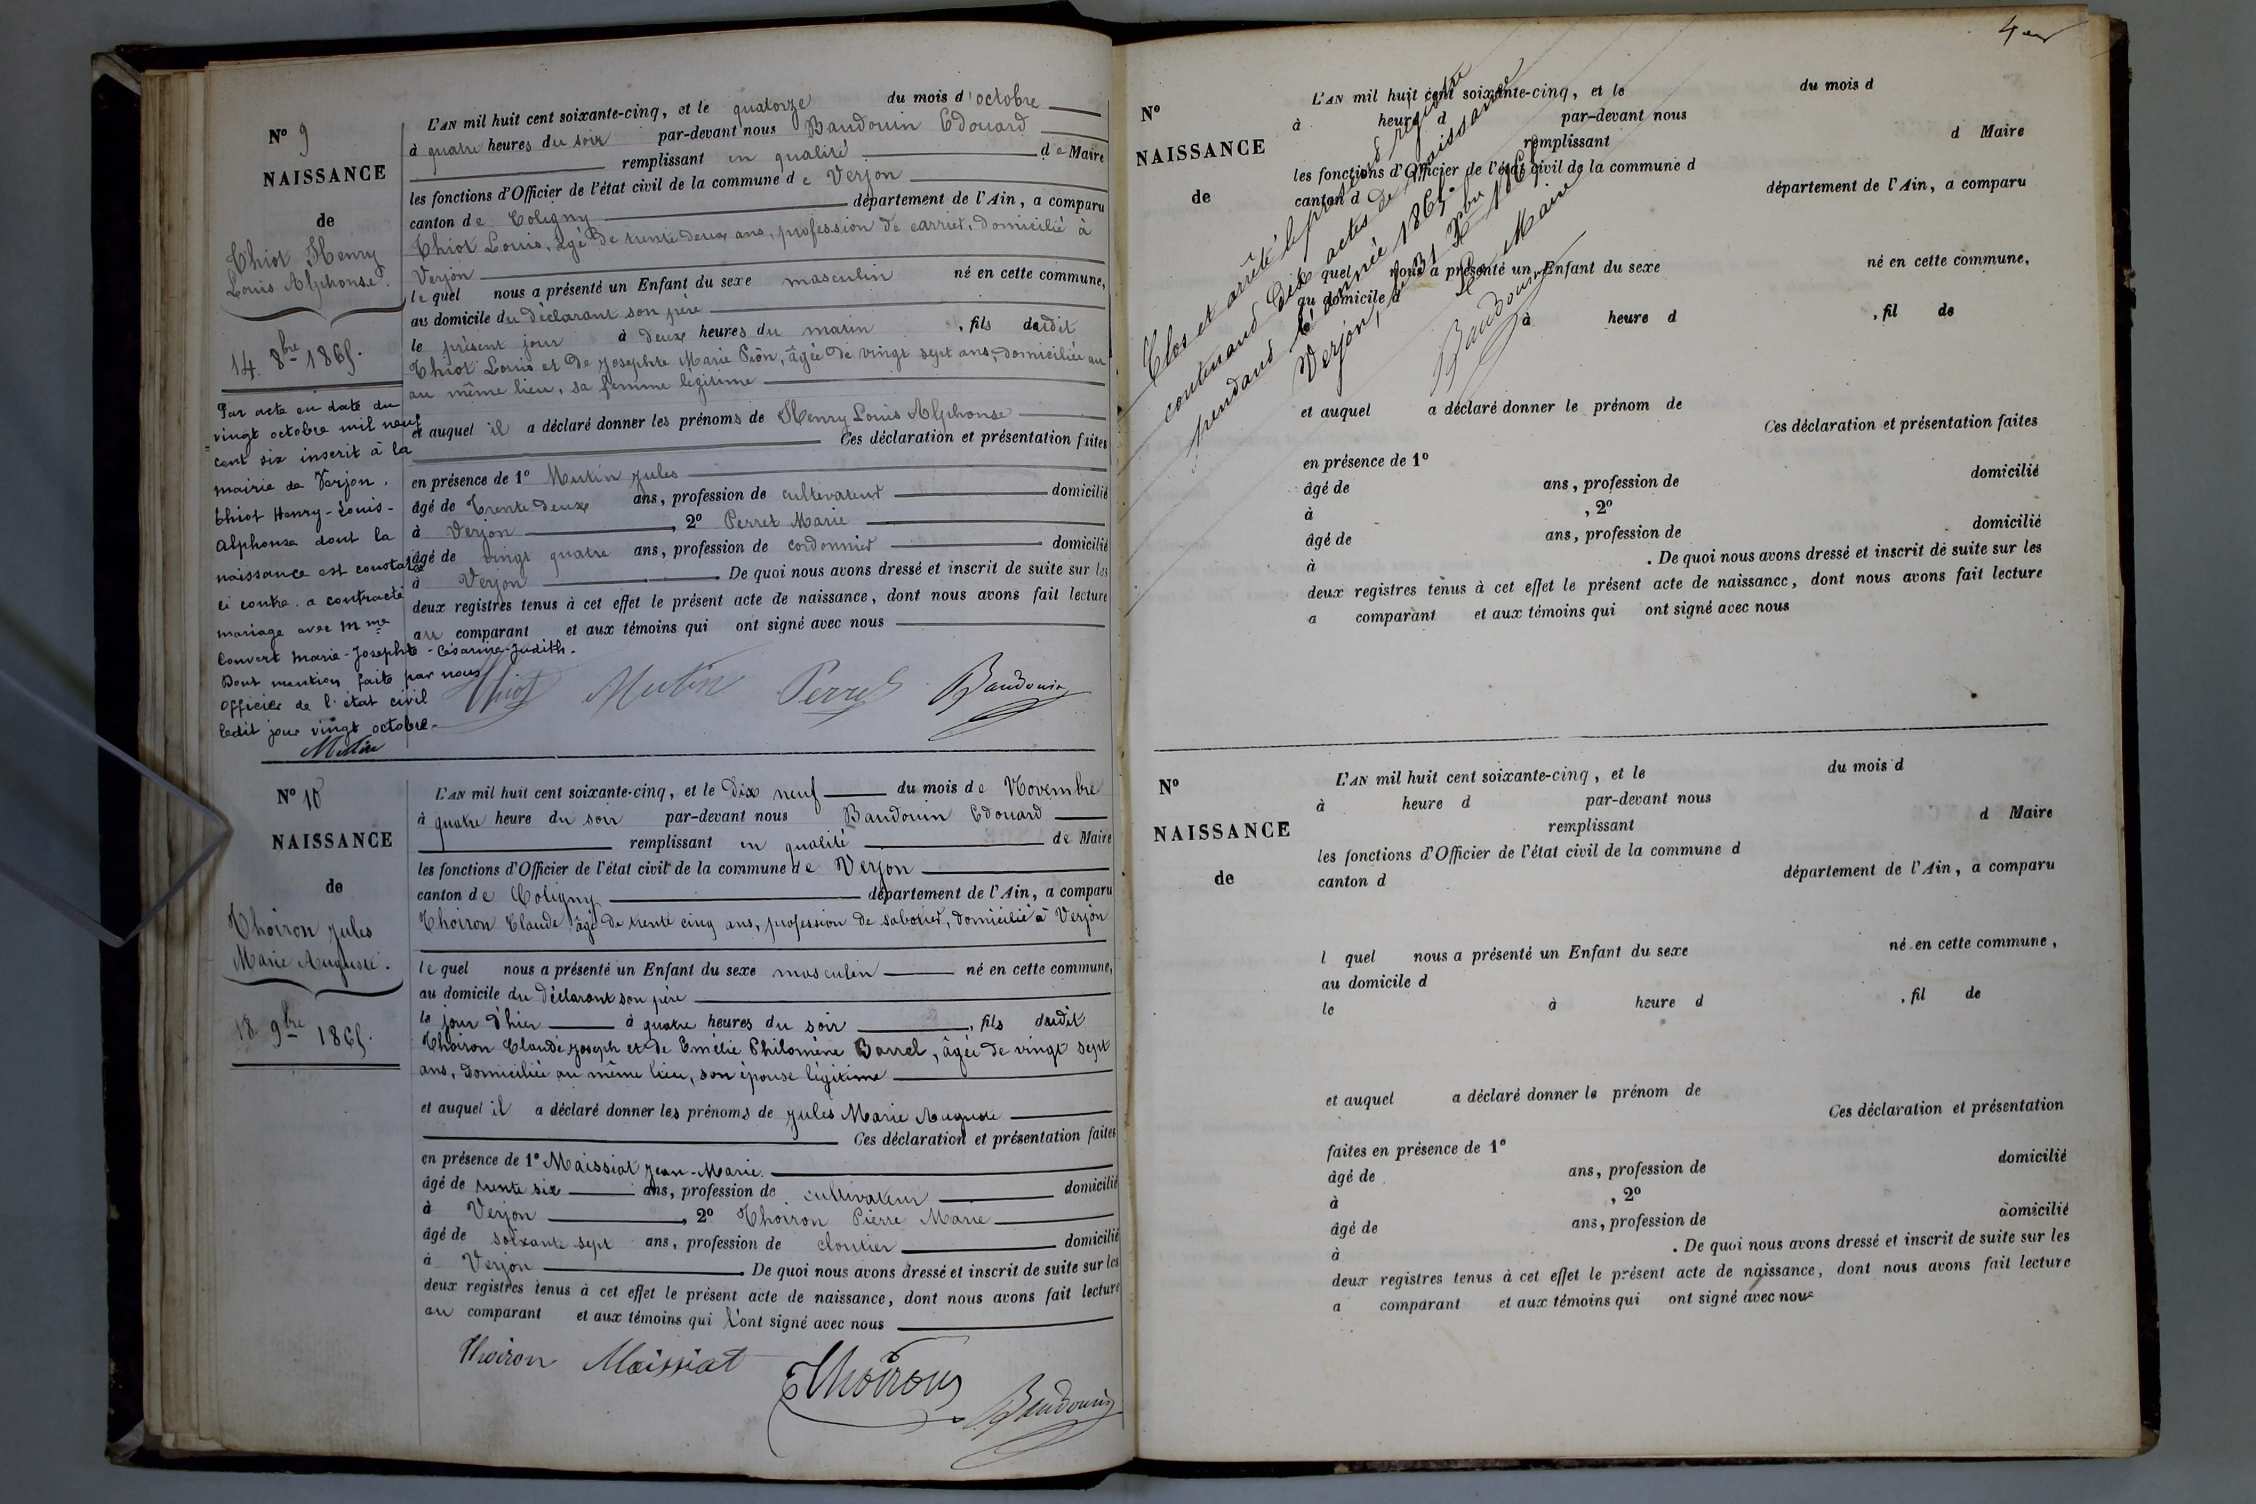 N° 9
NAISSANCE
de
Thiot Henry
Louis Alphonse.
14. 8bre 1865.
Par acte en date du
vingt octobre mil neuf
cent six inscrit à la
mairie de Verjon.
Thiot Henry-Louis-
Alphonse dont la
naissance est constatée
ci contre. a contracté
mariage avec Mme
Convert Marie-Josephte-Césarine-Judith.
Dont mention faite par nous
Officier de l'état civil
ledit jour vingt octobre.
Mutin
L'AN mil huit cent soixante-cinq, et le quatorze du mois d'octobre
à quatre heures du soir par-devant nous Baudouin Edouard
remplissant en qualité de Maire
les fonctions d'Officier de l'état civil de la commune de Verjon
canton de Coligny département de l'Ain, a comparu
Thiot Louis, âgé de trente deux ans, profession de carrier, domicilié à
Verjon
lequel nous a présenté un Enfant du sexe masculin né en cette commune,
au domicile du déclarant son père
le présent jour à deux heures du matin, fils dudit
Thiot Louis et de Josephte Marie Piôn, âgée de vingt sept ans, domiciliée au
au même lieu, sa femme légitime
et auquel il a déclaré donner les prénoms de Henry Louis Alphonse
Ces déclaration et présentation faites
en présence de 1° Mutin Jules
âgé de Trente deux ans, profession de cultivateur domicilié
à Verjon, 2° Perret Marie
âgé de vingt quatre ans, profession de cordonnier domicilié
à Verjon. De quoi nous avons dressé et inscrit de suite sur les
deux registres tenus à cet effet le présent acte de naissance, dont nous avons fait lecture
au comparant et aux témoins qui ont signé avec nous
Thiot Mutin Perret Baudouin
N° 10
NAISSANCE
de
Thoiron Jules
Marie Auguste.
18 9bre 1865.
L'AN mil huit cent soixante-cinq, et le Dix neuf du mois de Novembre
à quatre heure du soir par-devant nous Baudouin Edouard
remplissant en qualité de Maire
les fonctions d'Officier de l'état civil de la commune de Verjon
canton de Coligny département de l'Ain, a comparu
Thoiron Claude âgé de trente cinq ans, profession de sabotier, domicilié à Verjon
lequel nous a présenté un Enfant du sexe masculin né en cette commune,
au domicile du déclarant son père
le jour d'hier à quatre heures du soir, fils dudit
Thoiron Claude Joseph et de Emélie Philomène Barrel, âgée de vingt sept
ans, domiciliée au même lieu, son épouse légitime
et auquel il a déclaré donner les prénoms de Jules Marie Auguste
Ces déclaration et présentation faites
en présence de 1° Maissiat Jean-Marie
âgé de trente six ans, profession de cultivateur domicilié
à Verjon, 2° Thoiron Pierre Marie
âgé de soixante sept ans, profession de cloutier domicilié
à Verjon. De quoi nous avons dressé et inscrit de suite sur les
deux registres tenus à cet effet le présent acte de naissance, dont nous avons fait lecture
au comparant et aux témoins qui l'ont signé avec nous
Thoiron Maissiat Thoiron
Baudouin
N°
NAISSANCE
de
L'AN mil huit cent soixante-cinq, et le du mois d
à heure d par-devant nous
remplissant d Maire
les fonctions d'Officier de l'état civil de la commune d
canton d département de l'Ain, a comparu
quel nous a présenté un Enfant du sexe né en cette commune,
au domicile d
à heure d , fil de
et auquel a déclaré donner le prénom de
Ces déclaration et présentation faites
en présence de 1°
âgé de ans, profession de domicilié
à , 2°
âgé de ans, profession de domicilié
à . De quoi nous avons dressé et inscrit de suite sur les
deux registres tenus à cet effet le présent acte de naissance, dont nous avons fait lecture
a comparant et aux témoins qui ont signé avec nous
Clos et arrêté le présent registre
contenant dix actes de naissance
pendant l'année 1865.
Verjon, le 31 Xbre 1865
Le Maire
Baudouin
N°
NAISSANCE
de
L'AN mil huit cent soixante-cinq, et le du mois d
à heure d par-devant nous
remplissant d Maire
les fonctions d'Officier de l'état civil de la commune d
canton d département de l'Ain, a comparu
l quel nous a présenté un Enfant du sexe né en cette commune,
au domicile d
le à heure d , fil de
et auquel a déclaré donner le prénom de
Ces déclaration et présentation
faites en présence de 1°
âgé de ans, profession de domicilié
à , 2°
âgé de ans, profession de domicilié
à . De quoi nous avons dressé et inscrit de suite sur les
deux registres tenus à cet effet le présent acte de naissance, dont nous avons fait lecture
a comparant et aux témoins qui ont signé avec nous